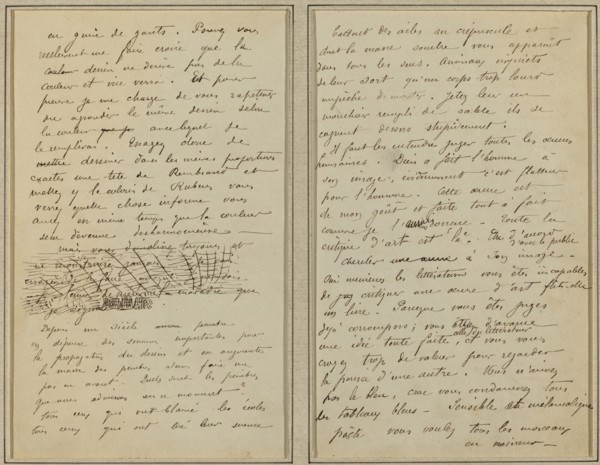 en guise de gants. Pouvez vous
réellement me faire croire que la
dessin ne dérive pas de la
couleur et vice versa. Et pour
preuve je me charge de vous
ou agrandir le même dessin selon
la couleur avec lequel je
le remplirai. Essayez donc de
mettre dessiner dans les mêmes proportions
exactes une tête de Rembrandt et
mettez y le coloris de Rubens vous
verrez quelle chose informe vous
aurez en même temps que la couleur
sera devenue
mais vous toujours et
que
Depuis un siècle on
dépense des sommes importantes pour
la propagation du dessin et on augmente
la masse des peintres sans faire un
pas en avant. Quels sont les peintres
que nous admirons en ce moment —?
tous ceux qui ont blamé les écoles
tous ceux qui ont tiré leur science
battent des ailes au crépuscule et
dont la masse sombre vous apparait
dans tous les sens. Animaux inquiets
de leur sort qu'un corps trop lourd
empêche de monter. Jetez leur un
mouchoir rempli de sable ils se
cognent dessus stupidement.
Il faut les entendre juger toutes les œuvres
humaines. Dieu a fait l'homme à
son image, évidemment c'est flatteur
pour l'homme. Cette œuvre est
de mon goût et faite tout à fait
comme je l'aurais conçue — Toute la
critique d'art est là. Être d'accord
avec le public
chercher une œuvre à son image —
Oui messieurs les littérateurs vous êtes incapables
de critiquer une œuvre d'art fût-elle
un livre. Parceque vous êtes juges
déjà corrompus; vous avez d'avance
de littérateur
une idée toute faite, et vous vous
croyez trop de valeur pour regarder
la pensée d'une autre. Vous n'aimez
pas le bleu, car vous condamnez tous
les tableaux bleus — Sensible et mélancolique
poète vous voulez tous les morceaux
en mineur —